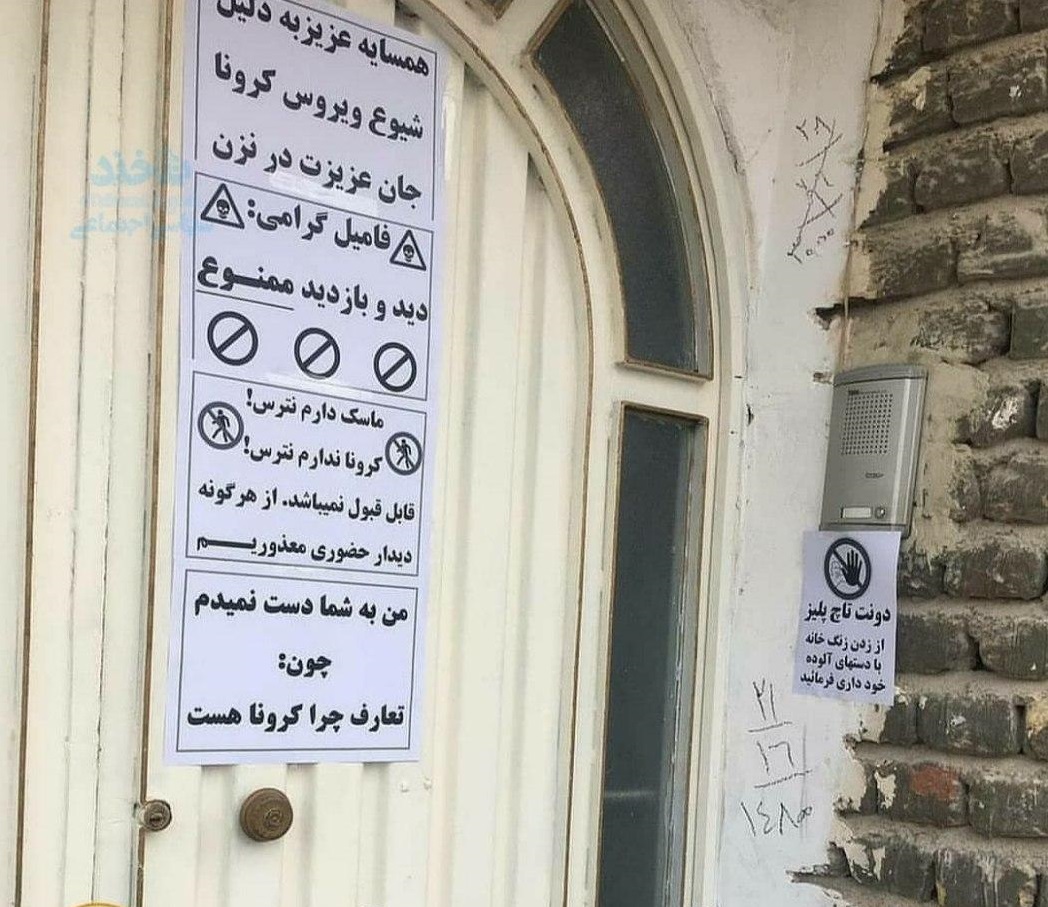 همسایه عزیزبه دلیل
شیوع ویروس کرونا
جان عزیزت در نزن
فامیل گرامی:
دید و بازدید ممنـــوع
ماسک دارم نترس!
کرونا ندارم نترس!
قابل قبول نمیباشد. از هرگونه
دیدار حضوری معذوریـــــم
من به شما دست نمیدم
چون:
تعارف چرا کرونا هست
دونت تاچ پلیز
از زدن زنگ خانه
با دستهای آلوده
خود داری فرمائید
۲۱
۱۶
۱۴۸۰۰